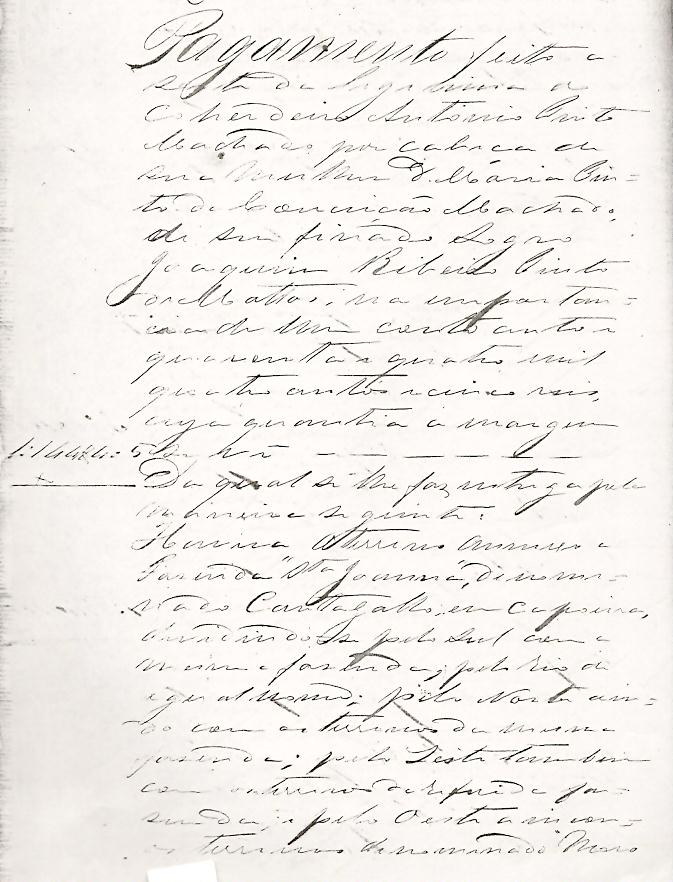 Pagamento feito a
sexta da legitima ao
Coherdeiro António Pinto
Machado por cabeca de
sua Mulher D. Mária Pin=
to da Conceição Machado,
de seu finado Sogro
Joaquim Ribeiro Pinto
de Mattos, na importan=
cia de Um conto cento e
quarenta e quatro mil
quatro centos e cinco reis,
cuja quantia á margem
se vê
Da qual se lhe faz entrega pela
maneira seguinte:
Haverá o terreno annexo a
Fazenda "Sta Joanna", denomi=
nado Cantagallo, em capoeira,
dividindo se pelo Sul com a
mesma fazenda; pelo rio de
igual nome; pelo Norte ain=
da com os terrenos da mesma
fasenda; pelo Leste tambem
com os terrenos da referida fa=
senda; e pelo Oeste ainda com
os terrenos denominado